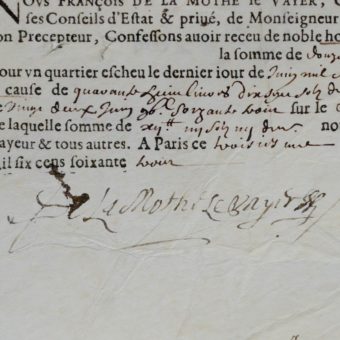 NOVS FRANÇOIS DE LA MOTHE le VAYER, C
ses Conseils d'Estat & priué, de Monseigneur
on Precepteur, Confessons auoir receu de noble ho
la somme de douze
our vn quartier escheu le dernier iour de Juin mil
cause de quarante huit liures dix sept solz
e vingt deux Juin soixante trois sur le
e laquelle somme de no
ayeur & tous autres. A Paris ce troisie
il six cens soixante trois
De La Mothe Le Vayer